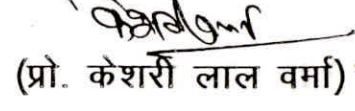 (प्रो. केशरी लाल वर्मा)